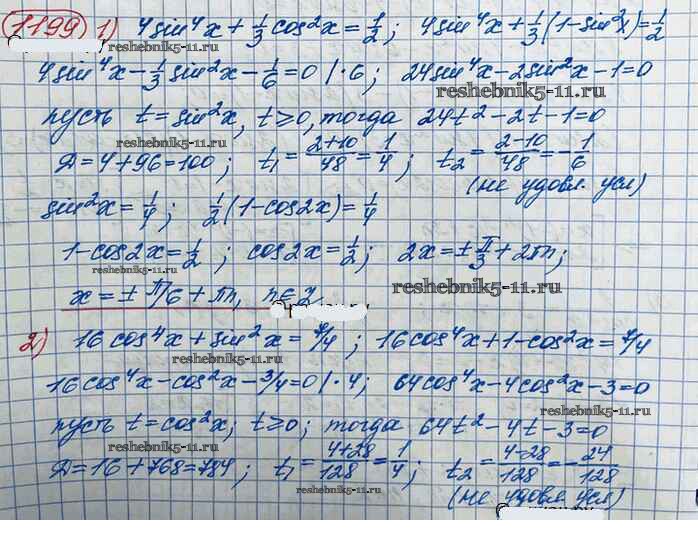 1199) 1) 4sin⁴x + 1/3 cos²x = 1/2; 4sin⁴x + 1/3(1-sin²x) = 1/2
reshebnik5-11.ru
4sin⁴x - 1/3 sin²x - 1/6 = 0 |·6; 24sin⁴x - 2sin²x - 1 = 0
reshebnik5-11.ru
пусть t = sin²x, t ≥ 0, тогда 24t² - 2t - 1 = 0
reshebnik5-11.ru
Д = 4 + 96 = 100; t₁ = (2+10)/48 = 1/4; t₂ = (2-10)/48 = -1/6
(не удовл. усл)
sin²x = 1/4; 1/2(1-cos2x) = 1/4
reshebnik5-11.ru
1-cos2x = 1/2; cos2x = 1/2; 2x = ±π/3 + 2πn;
reshebnik5-11.ru
reshebnik5-11.ru
x = ±π/6 + πn, n∈Z
2) 16cos⁴x + sin²x = 7/4; 16cos⁴x + 1 - cos²x = 7/4
reshebnik5-11.ru
16cos⁴x - cos²x - 3/4 = 0 |·4; 64cos⁴x - 4cos²x - 3 = 0
reshebnik5-11.ru
пусть t = cos²x; t ≥ 0; тогда 64t² - 4t - 3 = 0
reshebnik5-11.ru
Д = 16 + 768 = 784; t₁ = (4+28)/128 = 1/4; t₂ = (4-28)/128 = -24/128
reshebnik5-11.ru
(не удовл усл)